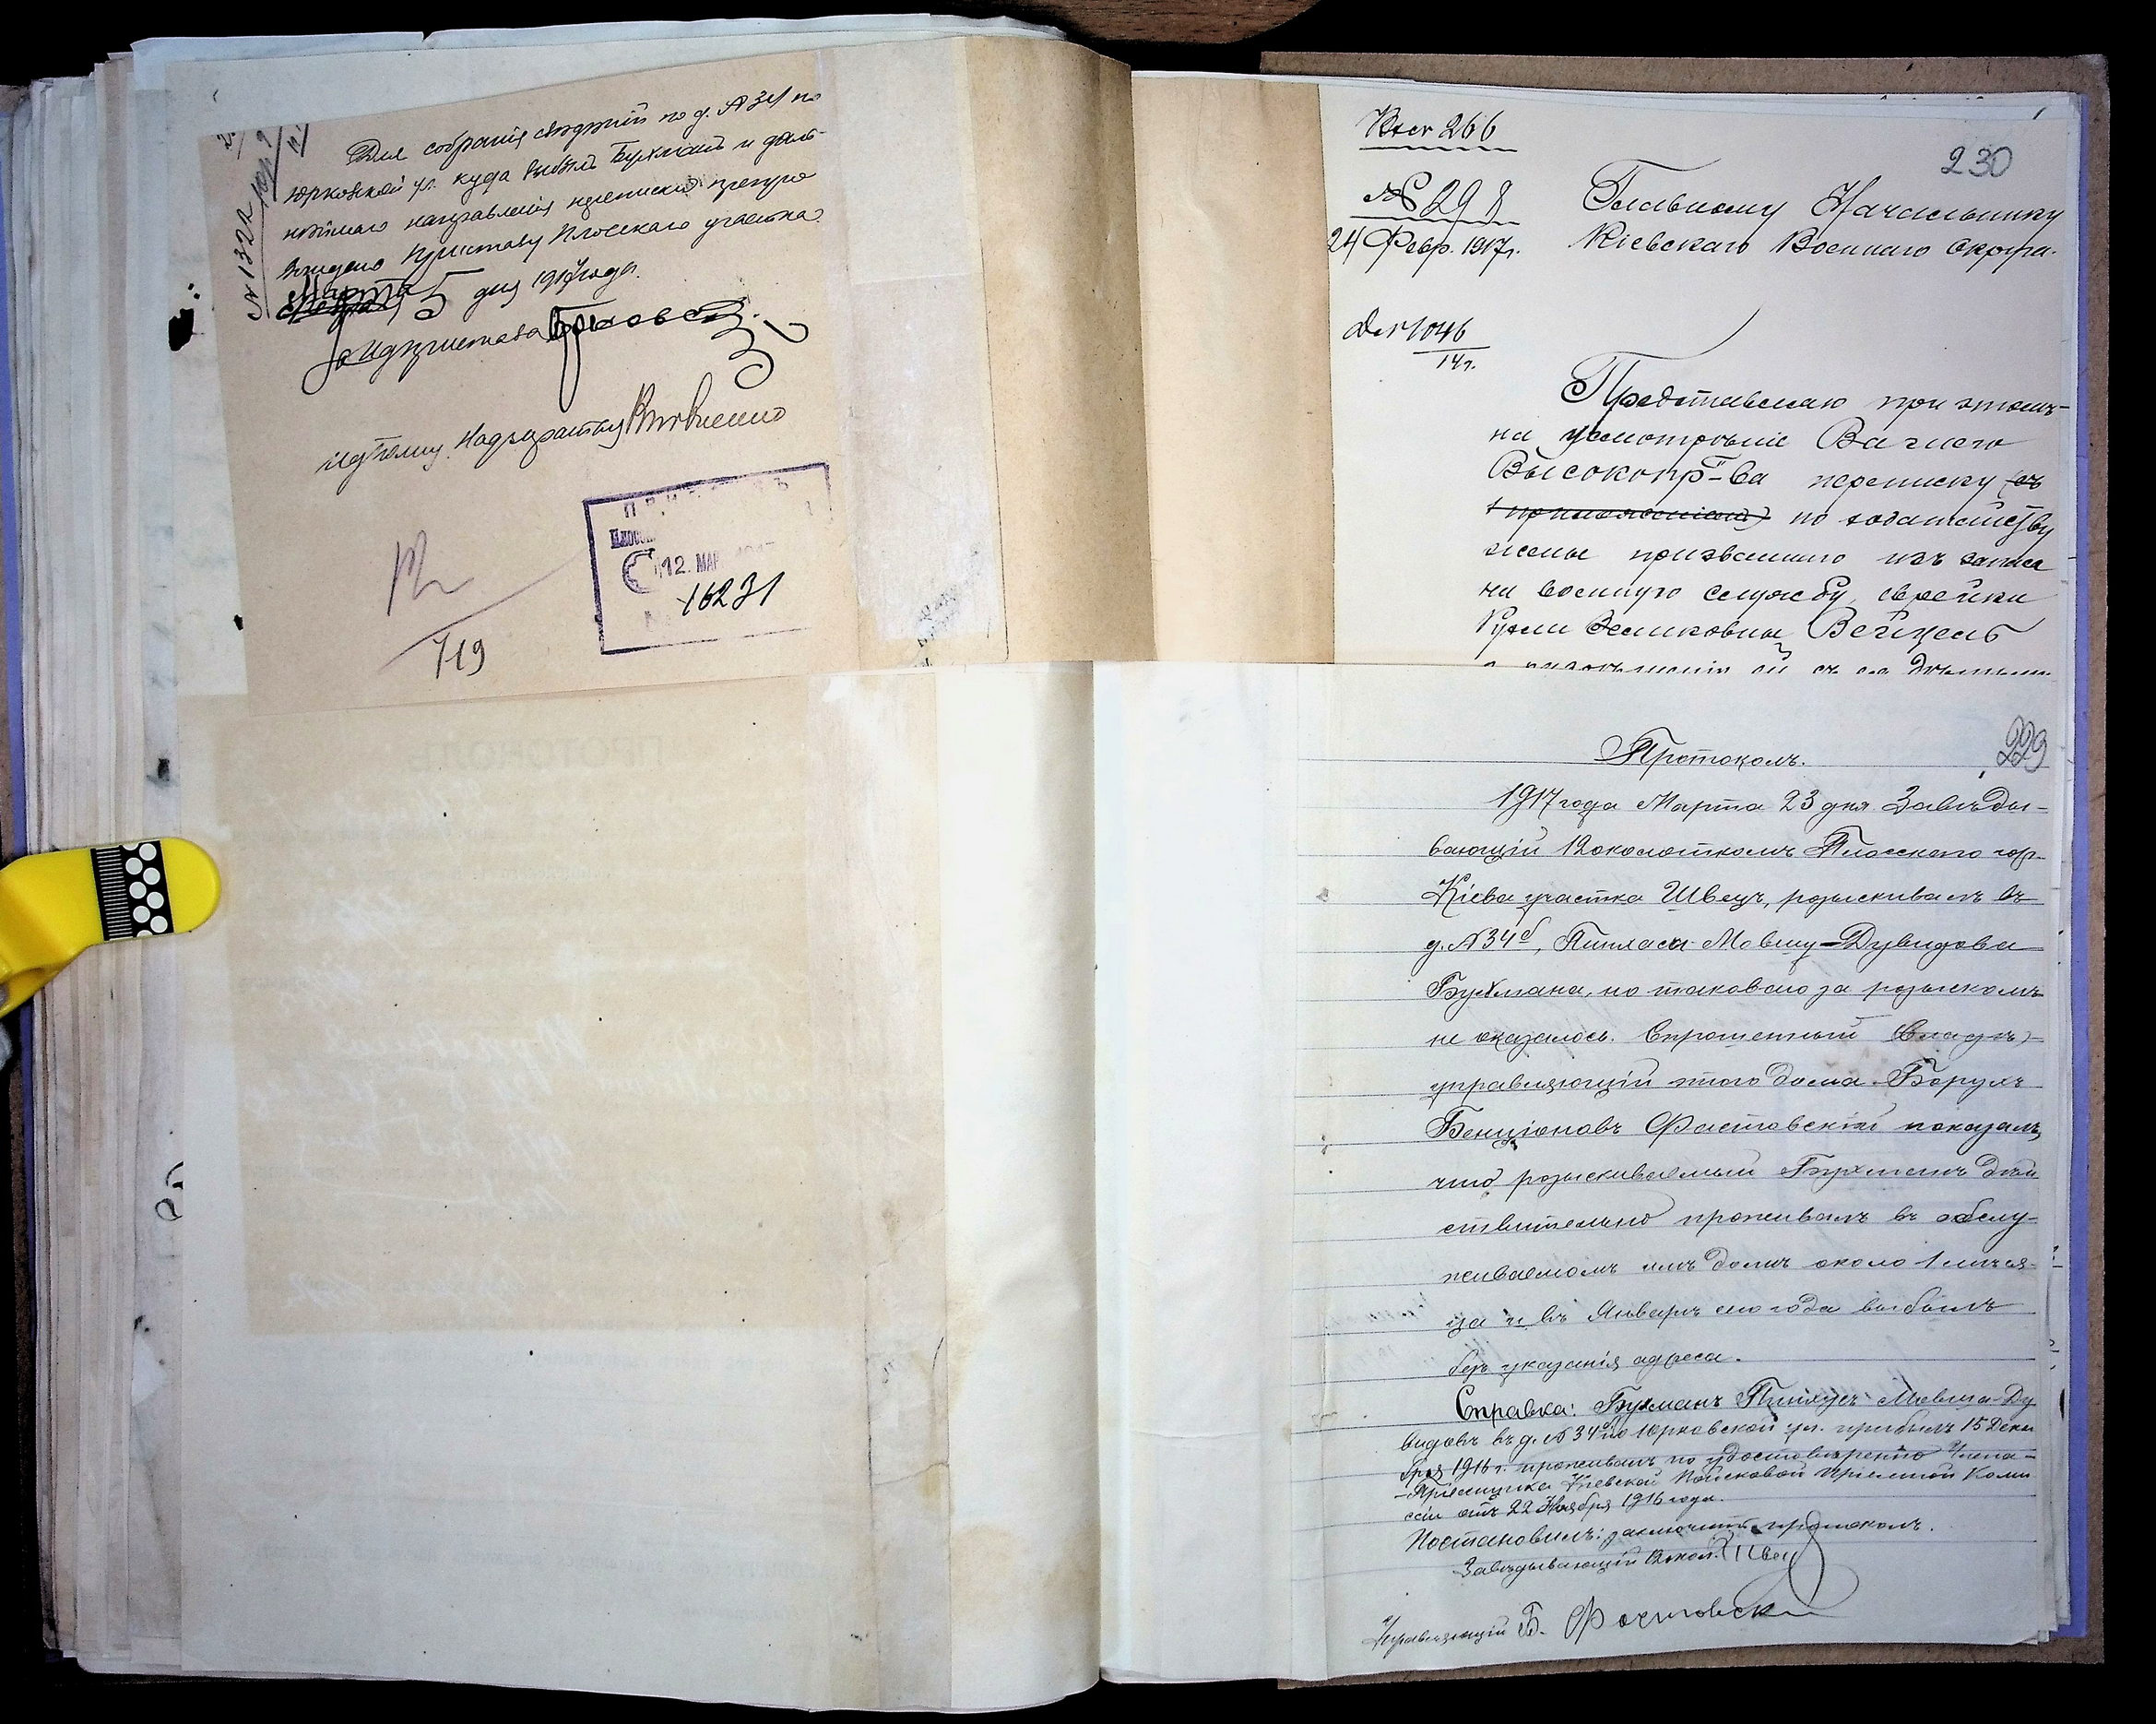 № 1322
Для собранія свѣдѣній по д. № 34 по
Юрковской ул. куда выбылъ Бухманъ и даль-
нѣйшаго направленія переписка препро
вождено Приставу Плоскаго участка.
Марта 5 дня 1917 года.
за Идпристава
Надзирателю
719
12. МАР
16231
266
230
№ 298
24 Февр. 1917г.
Главному Начальнику
Кіевскаго Военнаго Округа.
1046
14г.
Представляю при этомъ
на усмотрѣніе Вашего
Высокопр-ва переписку (съ
приложеніемъ) по ходатайству
жены призваннаго изъ запаса
на военную службу, еврейки
Вейцель
ей съ ея дѣтьми
229
Протоколъ.
1917 года Марта 23 дня Завѣды-
вающій 12 околоткомъ Плоскаго гор.
Кіева участка Швецъ, розыскивалъ въ
д. № 34б, Пинхаса Мовшу-Дувидова
Бухмана, но таковаго за розыскомъ
не оказалось. Спрошенный
управляющій этого дома Борухъ
Бенціоновъ Фастовскій показалъ,
что розыскиваемый Бухманъ дѣй
ствительно проживалъ въ обслу-
живаемомъ имъ домѣ около 1 мѣся-
ца и въ Январѣ сего года выбылъ
безъ указанія адреса.
Справка: Бухманъ Пинхусъ Мовша-Ду
видовъ въ д. № 34б по Юрковской ул. прибылъ 15 Дека
бря 1916 г. проживалъ по удостовѣренію Члена-
-Пріемщика Кіевской Поисковой Пріемной Коми
сіи отъ 22 Ноября 1916 года.
Постановилъ: заключить протоколъ.
Завѣдывающій 12 окол. Швец
Управляющій Б. Фастовски